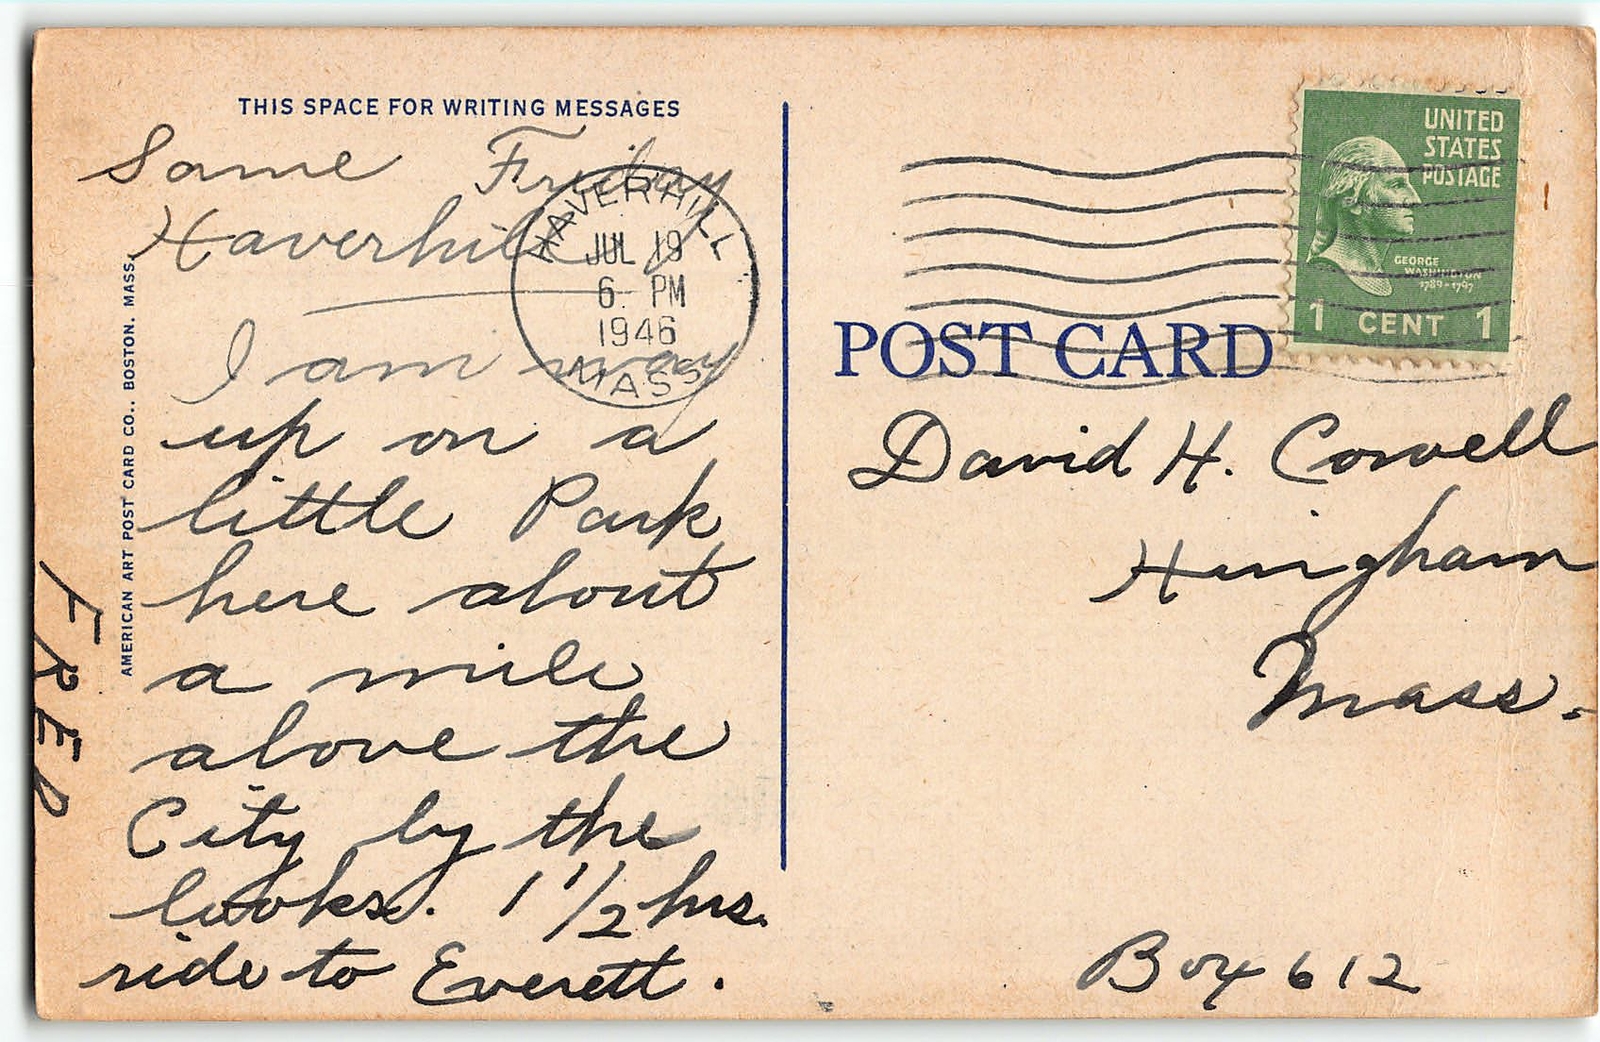 THIS SPACE FOR WRITING MESSAGES
Same Friday
Haverhill
I am way
up on a
little Park
here about
a mile
above the
City by the
looks. 1 1/2 hrs.
ride to Everett.
FRED
AMERICAN ART POST CARD CO., BOSTON, MASS.
HAVERHILL
JUL 19
6 PM
1946
MASS
UNITED
STATES
POSTAGE
GEORGE
WASHINGTON
1789-1797
1 CENT 1
POST CARD
David H. Cowell
Hingham
Mass.
Box 612